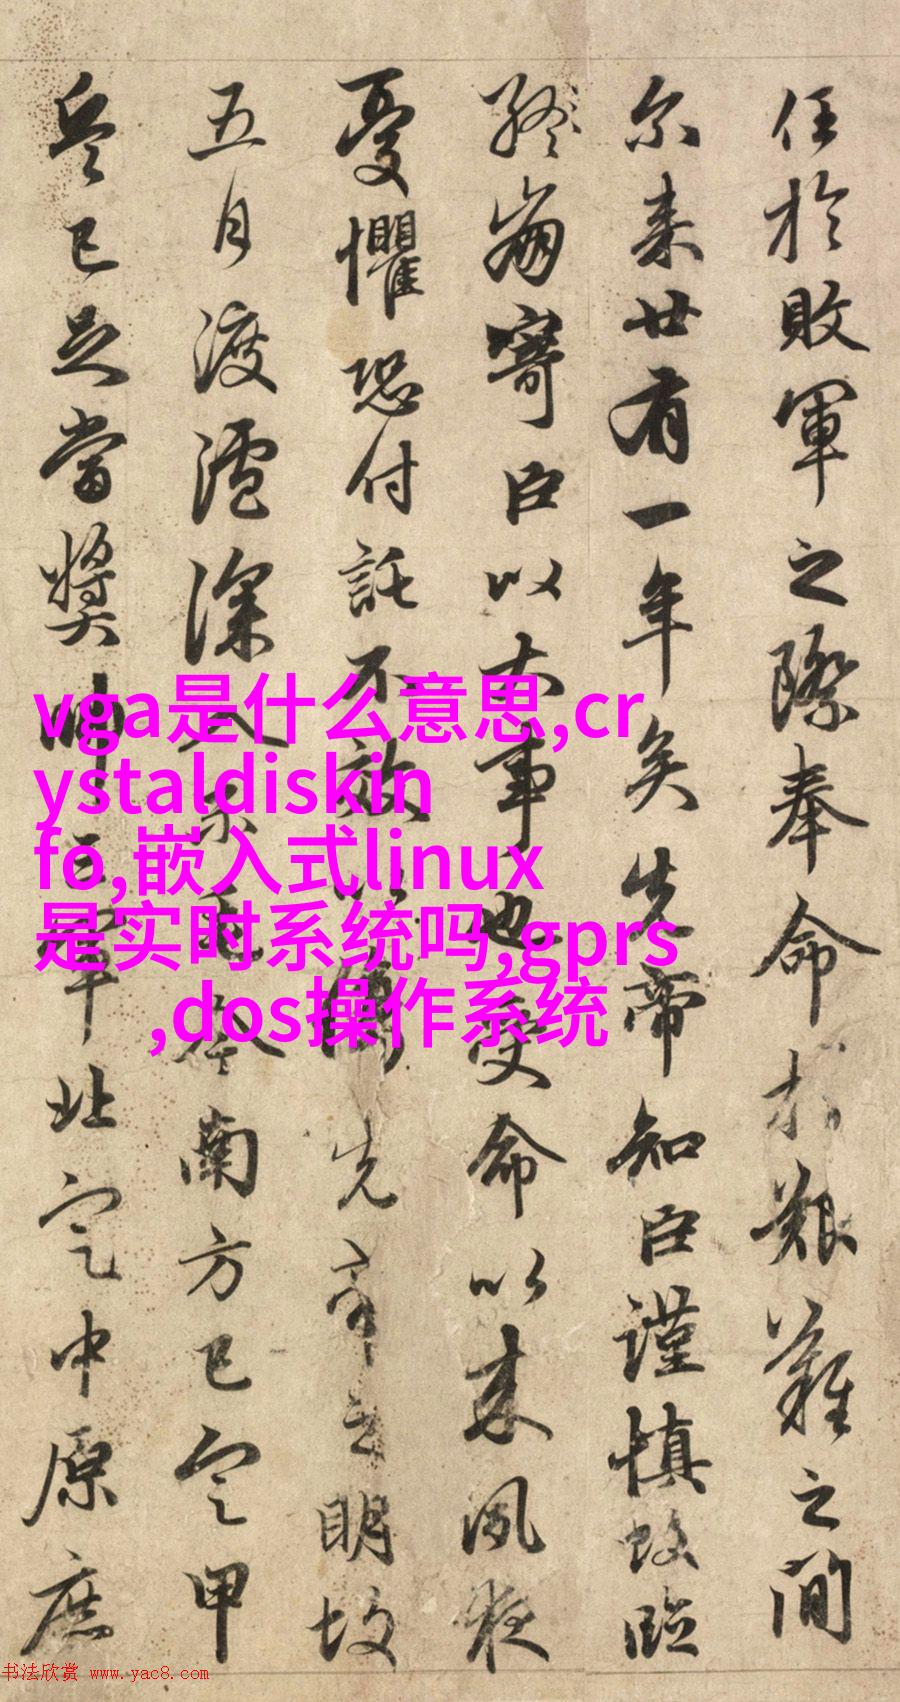 任於敗軍之際奉命於艱難之間
尔来廿有一年矣先帝知臣謹慎故臨
終崩寄臣以大事也受命以来夙夜
憂懼恐付託不效以傷先帝之明故
五月渡瀘深入不毛今南方已定甲
兵已足當奬帥三軍北定中原庶
vga是什么意思,cr
ystaldiskin
fo,嵌入式linux
是实时系统吗,gprs
,dos操作系统
书法欣赏 www.yac8.com